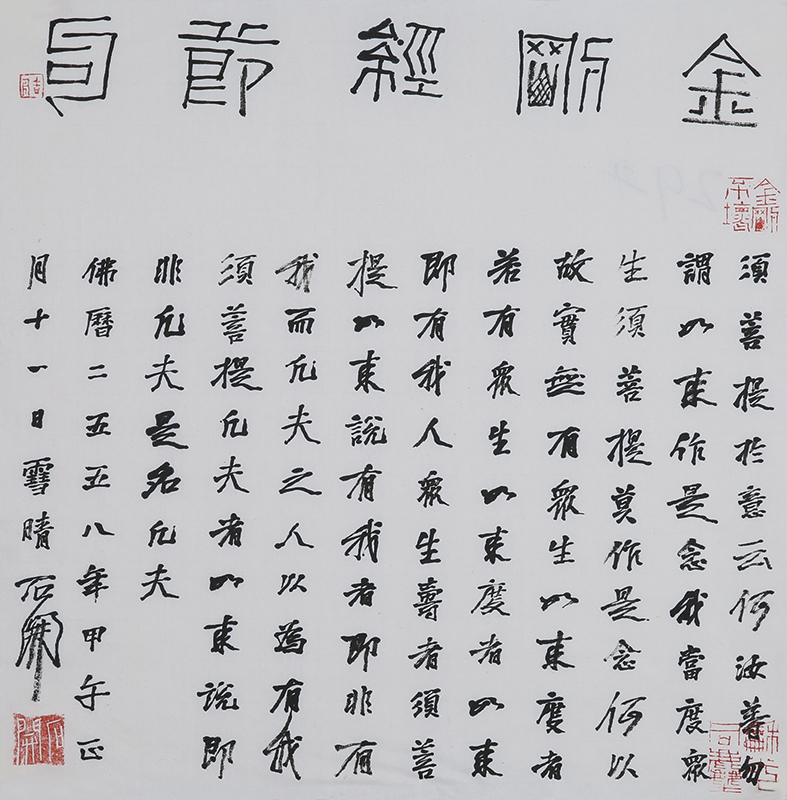 金剛經節
金剛不壞
須菩提於意云何汝等勿
謂如來作是念我當度眾
生須菩提莫作是念何以
故實無有眾生如來度者
若有眾生如來度者如來
即有我人眾生壽者須菩
提如來說有我者即非有
我而凡夫之人以為有我
須菩提凡夫者如來說即
非凡夫是名凡夫
佛曆二五五八年甲午正
月十一日雪晴石開
石開